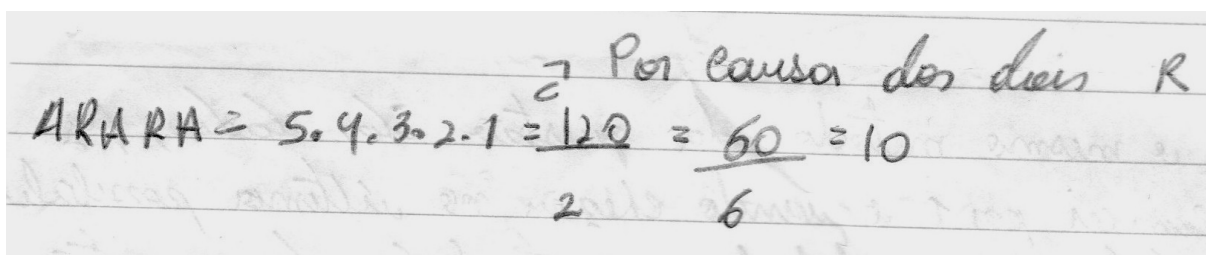 Por causa dos dois R
ARARA = 5.4.3.2.1 = 120/2 = 60/6 = 10